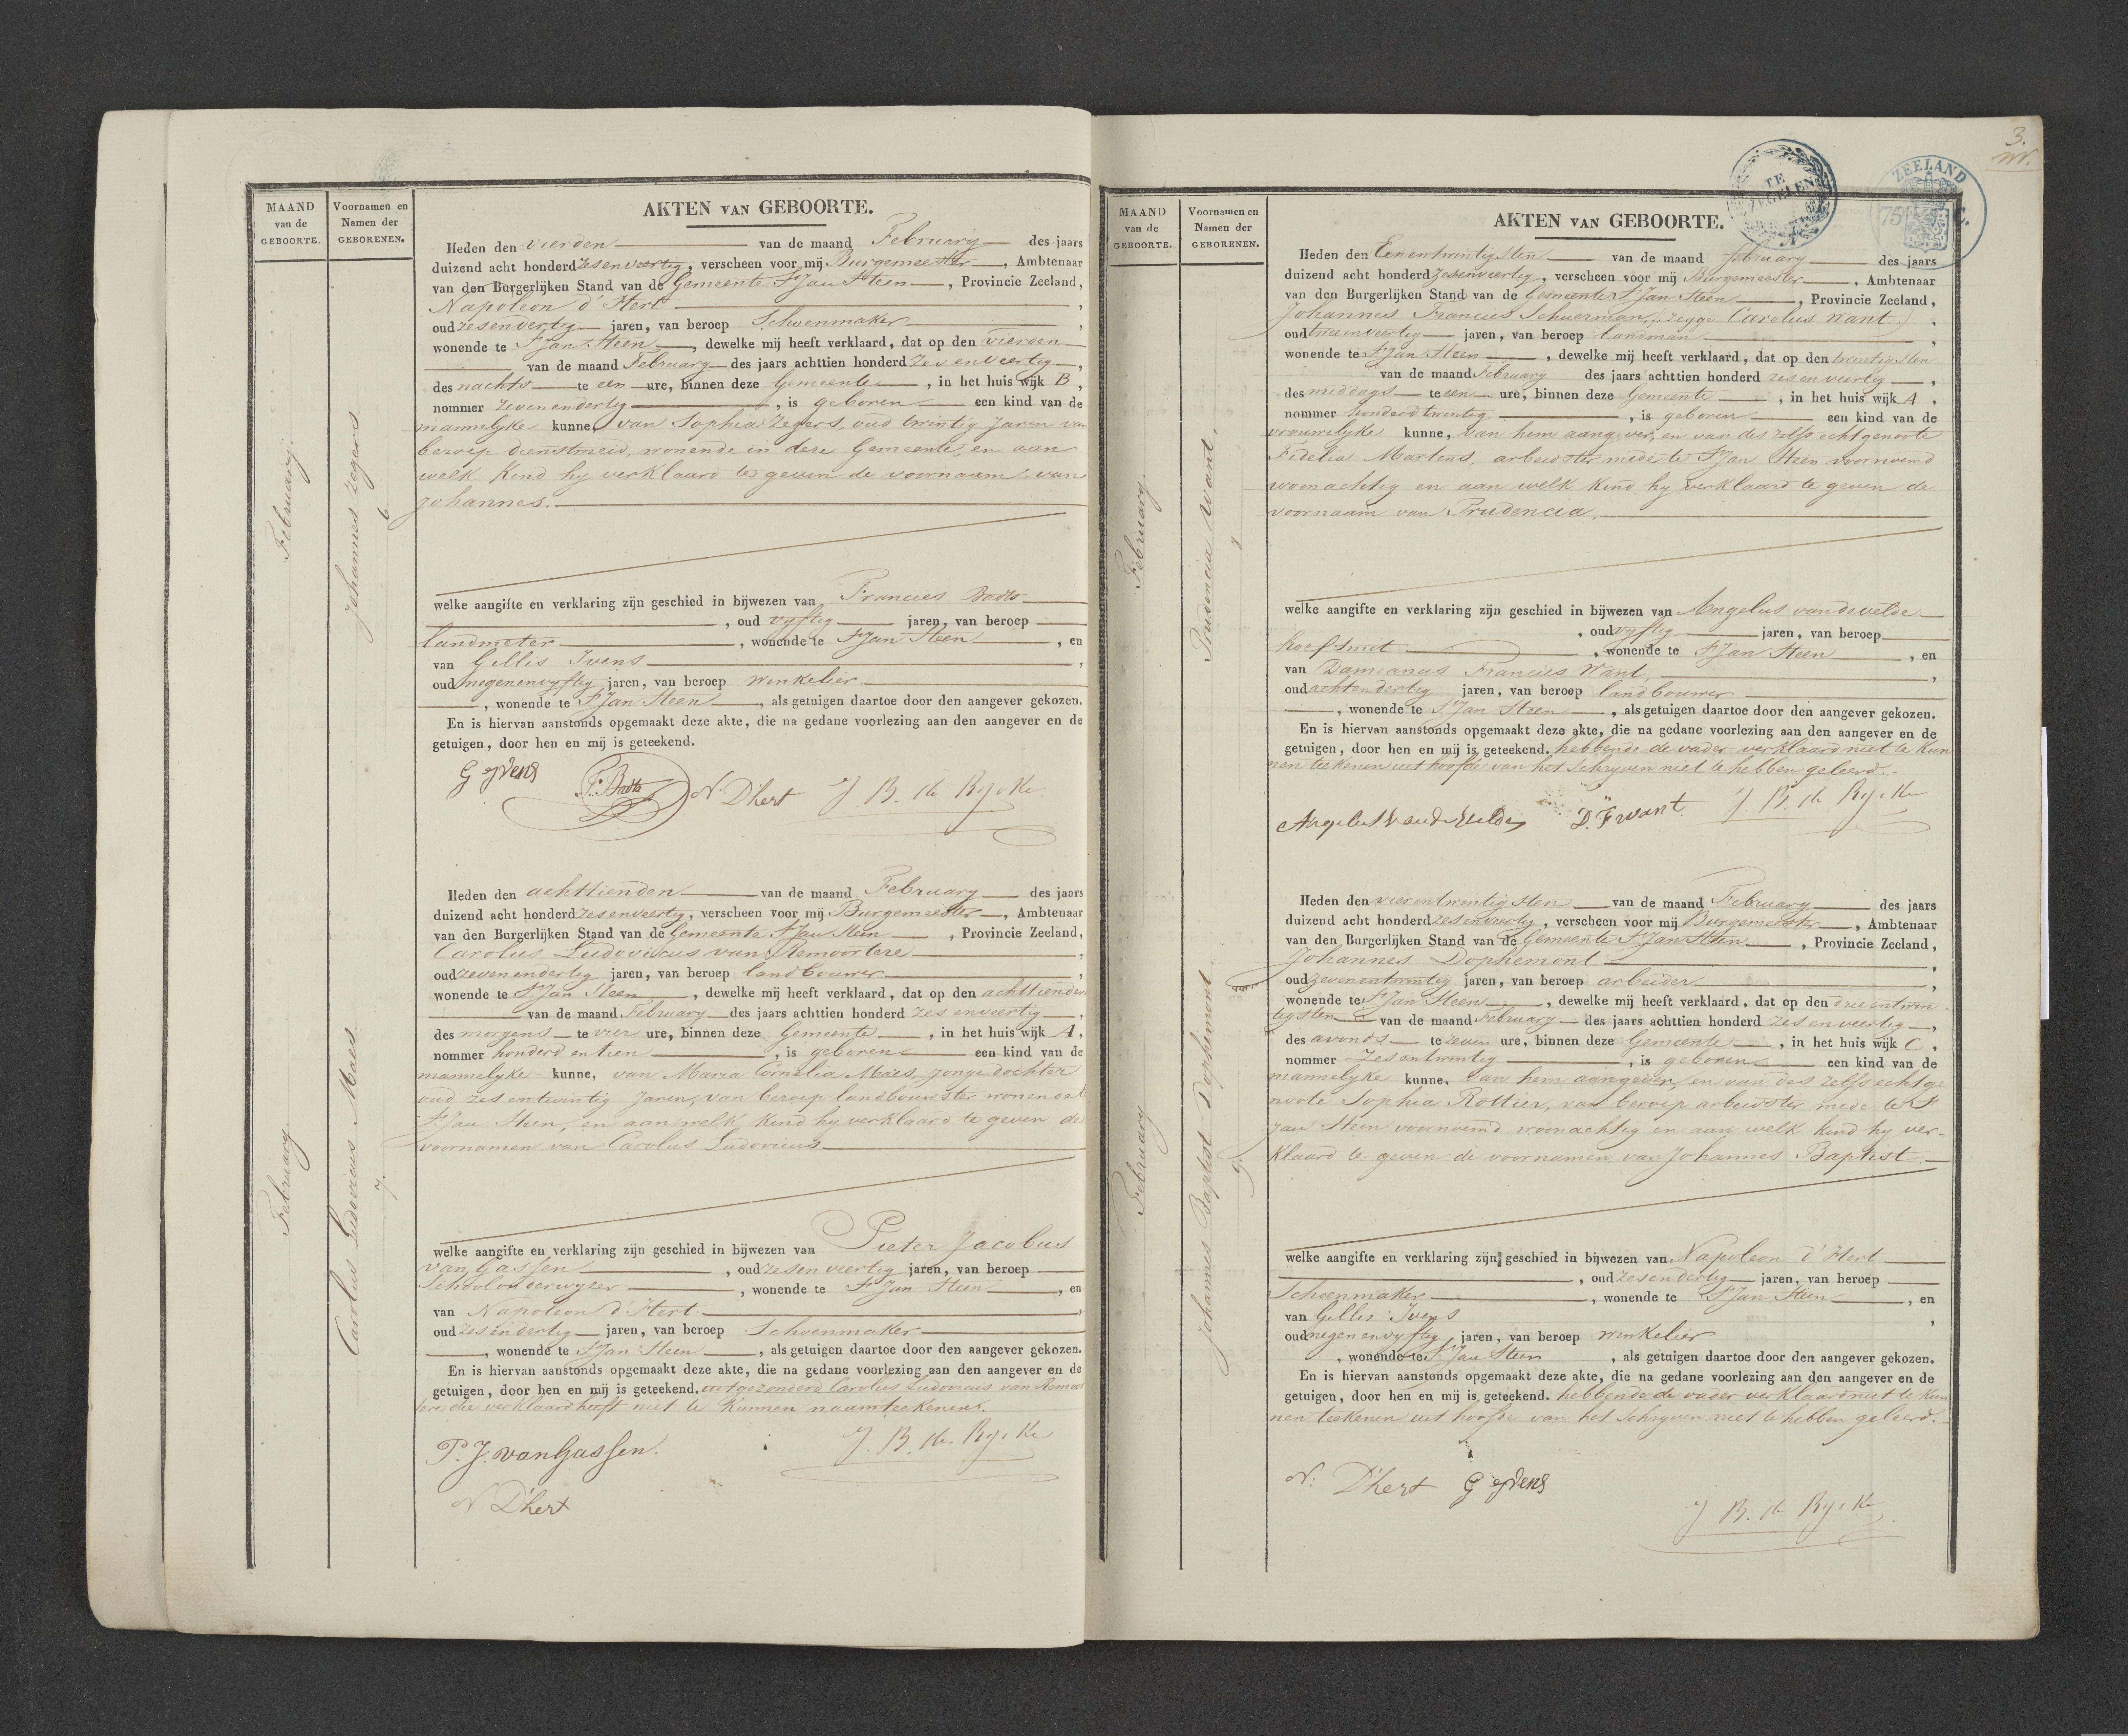 MAAND
van de
GEBOORTE.
Voornamen en
Namen der
GEBORENEN.
AKTEN VAN GEBOORTE.
February
Johannes Zegers
6
Heden den vierden van de maand February des jaars
duizend acht honderd zesenveertig, verscheen voor mij Burgemeester, Ambtenaar
van den Burgerlijken Stand van de Gemeente St Jan Steen, Provincie Zeeland,
Napoleon d'Hert,
oud zesendertig jaren, van beroep Schoenmaker,
wonende te St Jan Steen, dewelke mij heeft verklaard, dat op den vierden
van de maand February des jaars achttien honderd zesenveertig,
des nachts te een ure, binnen deze Gemeente, in het huis wijk B,
nommer zevenendertig, is geboren een kind van de
mannelyke kunne, van Sophia Zegers, oud twintig Jaren van
beroep dienstmeid, wonende in deze Gemeente, en aan
welk Kind hy verklaard te geven de voornaam van
Johannes.
welke aangifte en verklaring zijn geschied in bijwezen van Francies Badts
, oud vyftig jaren, van beroep
landmeter, wonende te St Jan Steen, en
van Gillis Ivens,
oud negenenvyftig jaren, van beroep winkelier
, wonende te St Jan Steen, als getuigen daartoe door den aangever gekozen.
En is hiervan aanstonds opgemaakt deze akte, die na gedane voorlezing aan den aangever en de
getuigen, door hen en mij is geteekend.
G Yvens F. Badts N. Dhert J. B. de Rycke
February
Carolus Ludovicus Maes
7.
Heden den achttienden van de maand February des jaars
duizend acht honderd zesenveertig, verscheen voor mij Burgemeester, Ambtenaar
van den Burgerlijken Stand van de Gemeente St Jan Steen, Provincie Zeeland,
Carolus Ludoviscus van Remoortere,
oud zevenendertig jaren, van beroep landbouwer,
wonende te St Jan Steen, dewelke mij heeft verklaard, dat op den achttienden
van de maand February des jaars achttien honderd zesenveertig,
des morgens te vier ure, binnen deze Gemeente, in het huis wijk A,
nommer honderd en tien, is geboren een kind van de
mannelyke kunne, van Maria Cornelia Maes, jonge dochter
oud zes entwintig Jaren, van beroep landbouwster wonende te
St Jan Steen, en aan welk Kind hy verklaard te geven de
voornamen van Carolus Ludovicus
welke aangifte en verklaring zijn geschied in bijwezen van Pieter Jacobus
van Gassen, oud zesenveertig jaren, van beroep
Schoolonderwyzer, wonende te St Jan Steen, en
van Napoleon d'Hert,
oud zesendertig jaren, van beroep Schoenmaker
, wonende te St Jan Steen, als getuigen daartoe door den aangever gekozen.
En is hiervan aanstonds opgemaakt deze akte, die na gedane voorlezing aan den aangever en de
getuigen, door hen en mij is geteekend. uitgezonderd Carolus Ludovicus van Remoor
tere die verklaard heeft niet te Kunnen naamteekenen.
P. J. van Gassen. J. B. de Rycke
N Dhert
3.
ZEELAND
75 C.
MAAND
van de
GEBOORTE.
Voornamen en
Namen der
GEBORENEN.
AKTEN VAN GEBOORTE.
February
Prudencia Want.
8
Heden den Eenentwintigsten van de maand february des jaars
duizend acht honderd zesenveertig, verscheen voor mij Burgemeester, Ambtenaar
van den Burgerlijken Stand van de Gemeente St Jan Steen, Provincie Zeeland,
Johannes Francies Schuerman, (zegge Carolus Want),
oud tweenveertig jaren, van beroep landman,
wonende te St Jan Steen, dewelke mij heeft verklaard, dat op den twintigsten
van de maand February des jaars achttien honderd zesenveertig,
des middags te een ure, binnen deze Gemeente, in het huis wijk A,
nommer honderd twintig, is geboren een kind van de
vrouwelyke kunne, van hem aangever, en van des zelfs echtgenoote
Fidelia Martens, arbeidster mede te St Jan Steen voornoemd
woonachtig en aan welk Kind hy verklaard te geven de
voornaam van Prudencia.
welke aangifte en verklaring zijn geschied in bijwezen van Angelus vandevelde
, oud vyftig jaren, van beroep
hoefsmit, wonende te St Jan Steen, en
van Damianus Francies Want,
oud achtendertig jaren, van beroep landbouwer
, wonende te St Jan Steen, als getuigen daartoe door den aangever gekozen.
En is hiervan aanstonds opgemaakt deze akte, die na gedane voorlezing aan den aangever en de
getuigen, door hen en mij is geteekend. hebbende de vader verklaard niet te Kun
nen teekenen uit hoofde van het Schryven niet te hebben geleerd.
Angelus Vandevelde D. F want. J. B. de Rycke
February
Johannes Baptist Dophemont
9.
Heden den vierentwintigsten van de maand February des jaars
duizend acht honderd zesenveertig, verscheen voor mij Burgemeester, Ambtenaar
van den Burgerlijken Stand van de Gemeente St Jan Steen, Provincie Zeeland,
Johannes Dophemont,
oud zevenentwintig jaren, van beroep arbeider,
wonende te St Jan Steen, dewelke mij heeft verklaard, dat op den drieentwin
tigsten van de maand February des jaars achttien honderd zesenveertig,
des avonds te zeven ure, binnen deze Gemeente, in het huis wijk C,
nommer zesentwintig, is geboren een kind van de
mannelyke kunne, van hem aangever, en van des zelfs echtge
noote Sophia Rottier, van beroep arbeidster mede te St
Jan Steen voornoemd woonachtig en aan welk Kind hy ver-
klaard te geven de voornamen van Johannes Baptist.
welke aangifte en verklaring zijn geschied in bijwezen van Napoleon d'Hert
, oud zesendertig jaren, van beroep
Schoenmaker, wonende te St Jan Steen, en
van Gillis Ivens,
oud negenenvyftig jaren, van beroep winkelier
, wonende te St Jan Steen, als getuigen daartoe door den aangever gekozen.
En is hiervan aanstonds opgemaakt deze akte, die na gedane voorlezing aan den aangever en de
getuigen, door hen en mij is geteekend. hebbende de vader verklaard niet te Kun
nen teekenen uit hoofde van het Schryven niet te hebben geleerd.
N. Dhert G Yvens
J. B. de Rycke